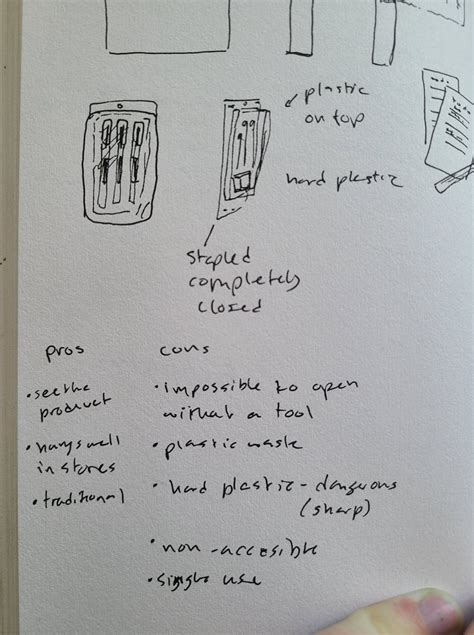 plastic
on top
hard plastic
stapled
completely
closed
pros
cons
• see the
product
• hangs well
in stores
• traditional
• impossible to open
without a tool
• plastic waste
• hard plastic - dangerous
(sharp)
• non-accesible
• single use